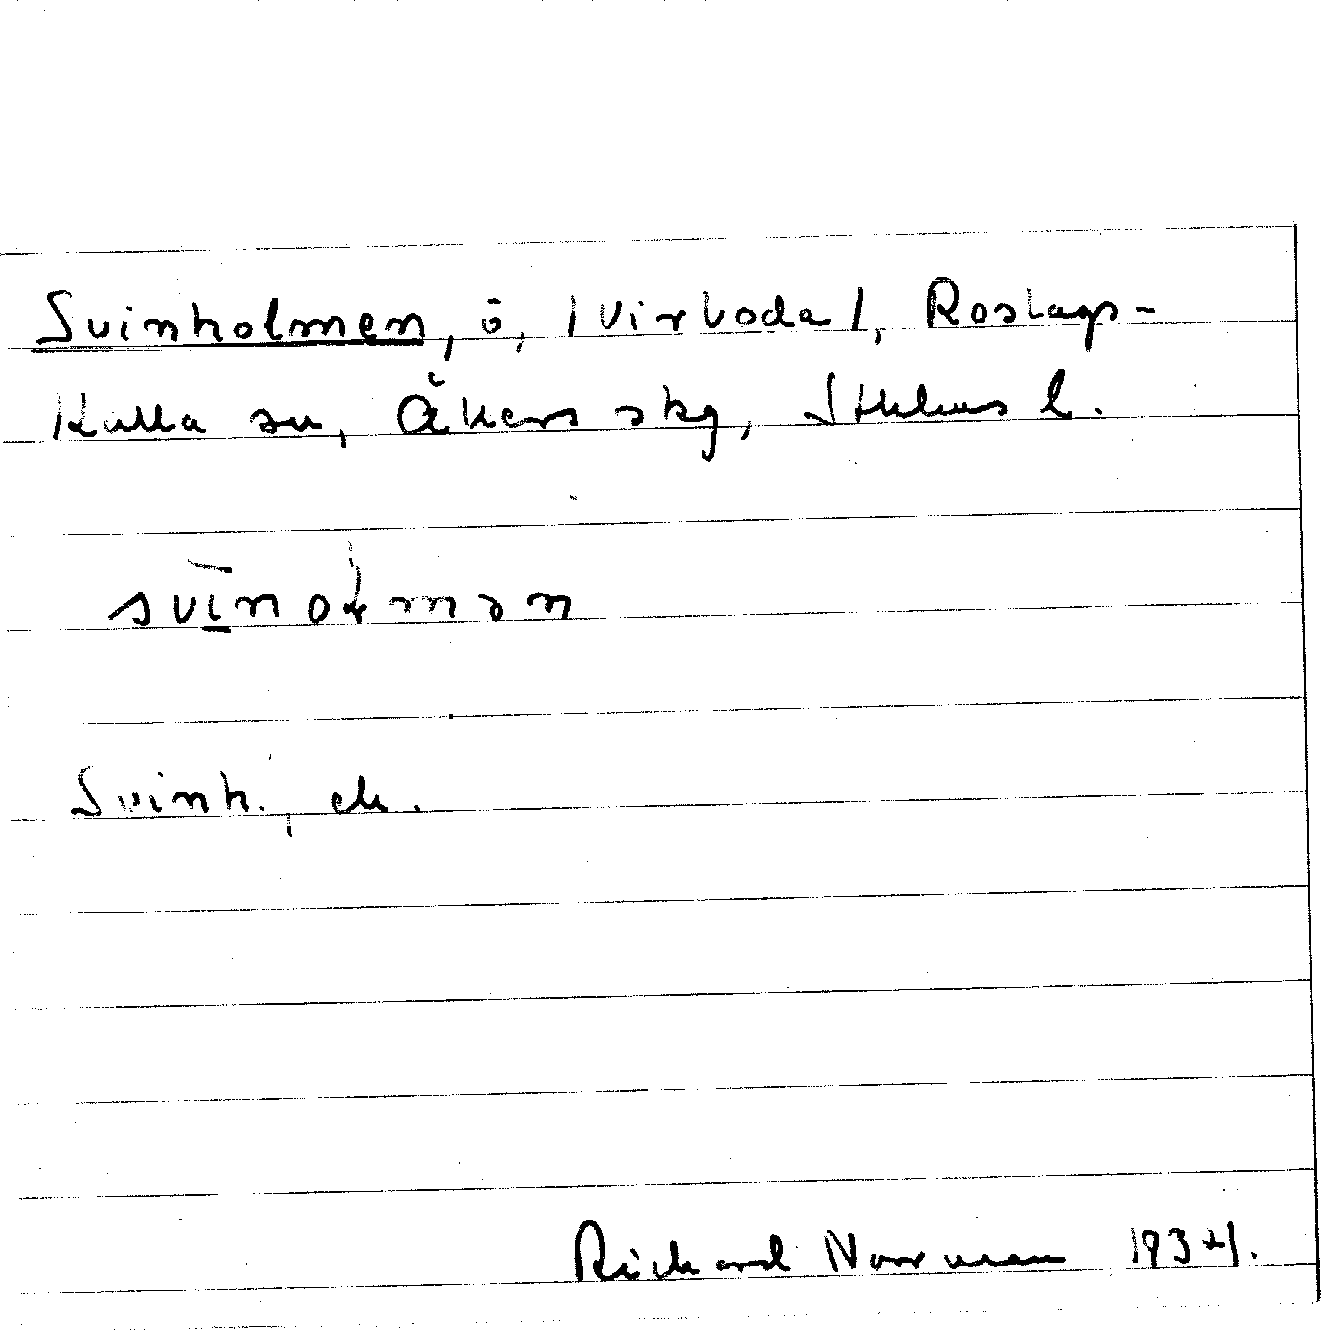 Svinholmen, ö, /Virboda/, Roslags-
Kulla sn, Åkers skg, Sthlms l.
svīnoɫmən
Svinh., ek.
Rickard Norrman 1934.